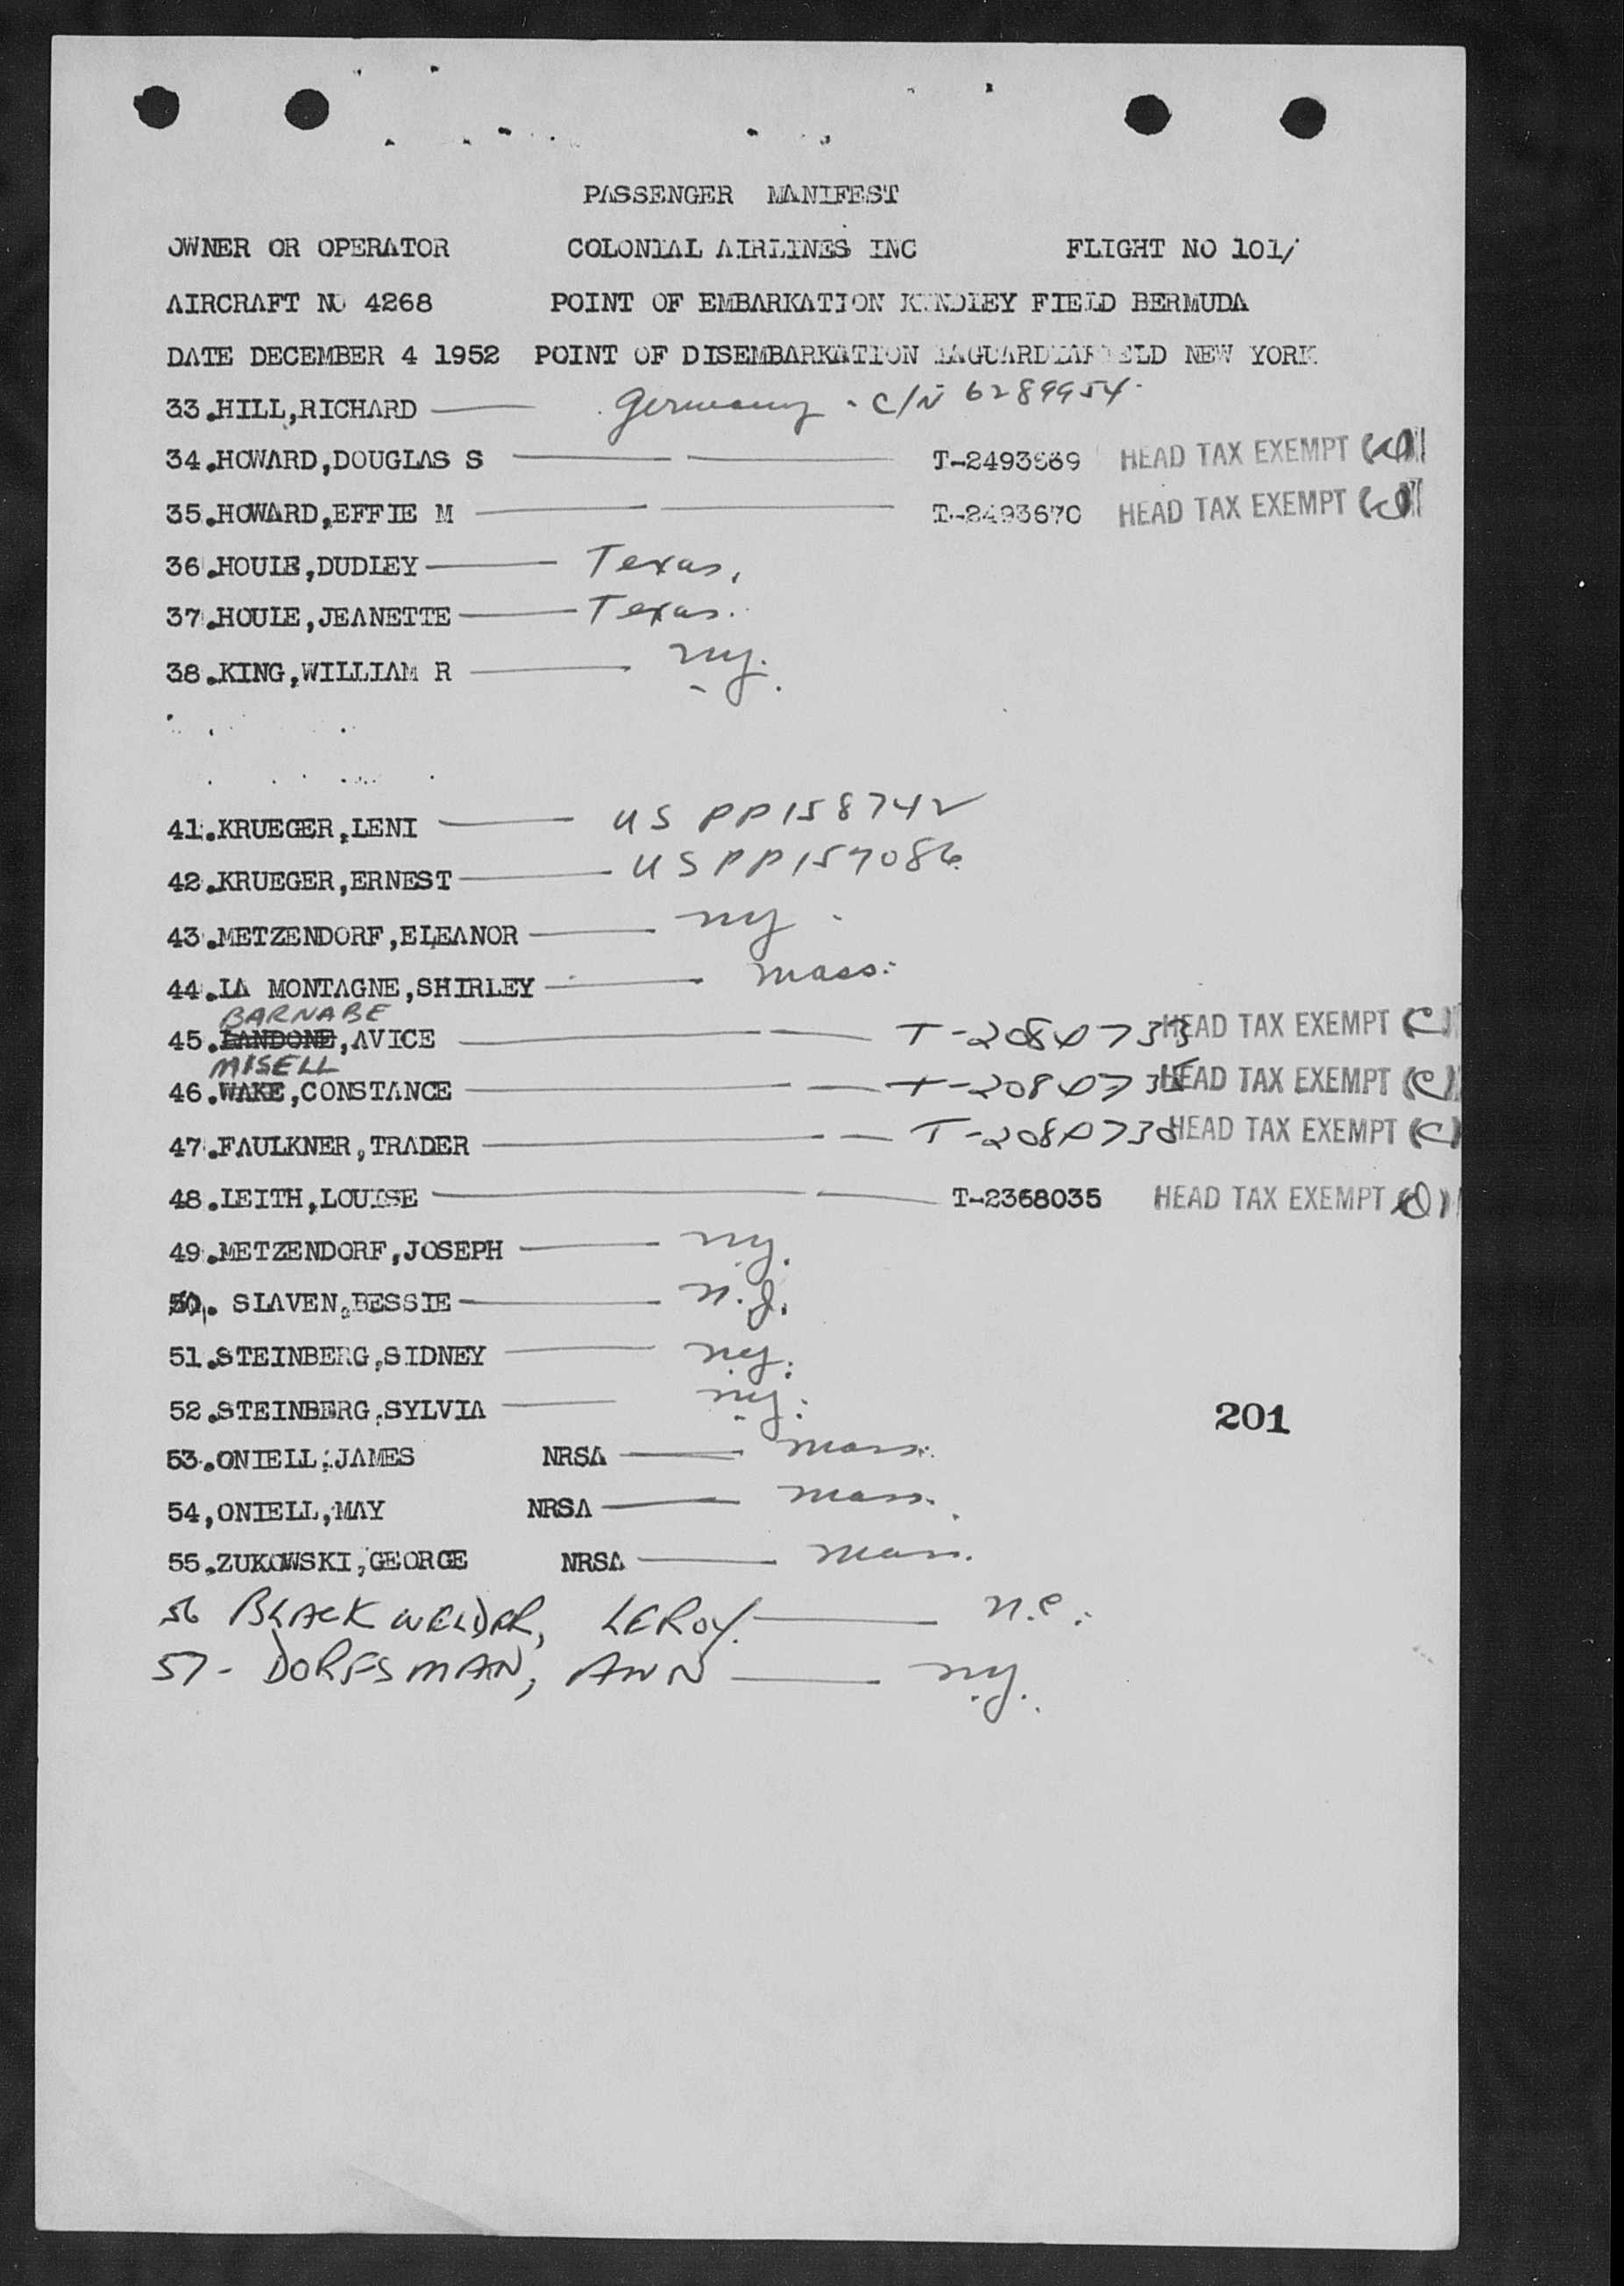 PASSENGER MANIFEST
OWNER OR OPERATOR COLONIAL AIRLINES INC FLIGHT NO 101/
AIRCRAFT NO 4268 POINT OF EMBARKATION KINDLEY FIELD BERMUDA
DATE DECEMBER 4 1952 POINT OF DISEMBARKATION LAGUARDIAFIELD NEW YORK
33.HILL,RICHARD Germany - C/N 6289954
34.HOWARD,DOUGLAS S T-2493669 HEAD TAX EXEMPT
35.HOWARD,EFFIE M T-2493670 HEAD TAX EXEMPT
36.HOULE,DUDLEY Texas,
37.HOULE,JEANETTE Texas.
38.KING,WILLIAM R ny.
41.KRUEGER,LENI US PP158742
42.KRUEGER,ERNEST US PP157086
43.METZENDORF,ELEANOR ny
44.LA MONTAGNE,SHIRLEY mass.
BARNABE
45.LANDONE,AVICE T-2080733 HEAD TAX EXEMPT (C)
MISELL
46.WAKE,CONSTANCE HEAD TAX EXEMPT (C)
47.FAULKNER,TRADER HEAD TAX EXEMPT (C)
48.LEITH,LOUISE T-2368035 HEAD TAX EXEMPT
49.METZENDORF,JOSEPH ny.
50. SLAVEN,BESSIE n.J.
51.STEINBERG,SIDNEY ny.
52.STEINBERG,SYLVIA ny.
201
53.ONIELL,JAMES NRSA mass.
54,ONIELL,MAY NRSA mass.
55.ZUKOWSKI,GEORGE NRSA mass.
56 BLACKWELDER, LEROY. n.c.
57- DORFSMAN, ANN ny.